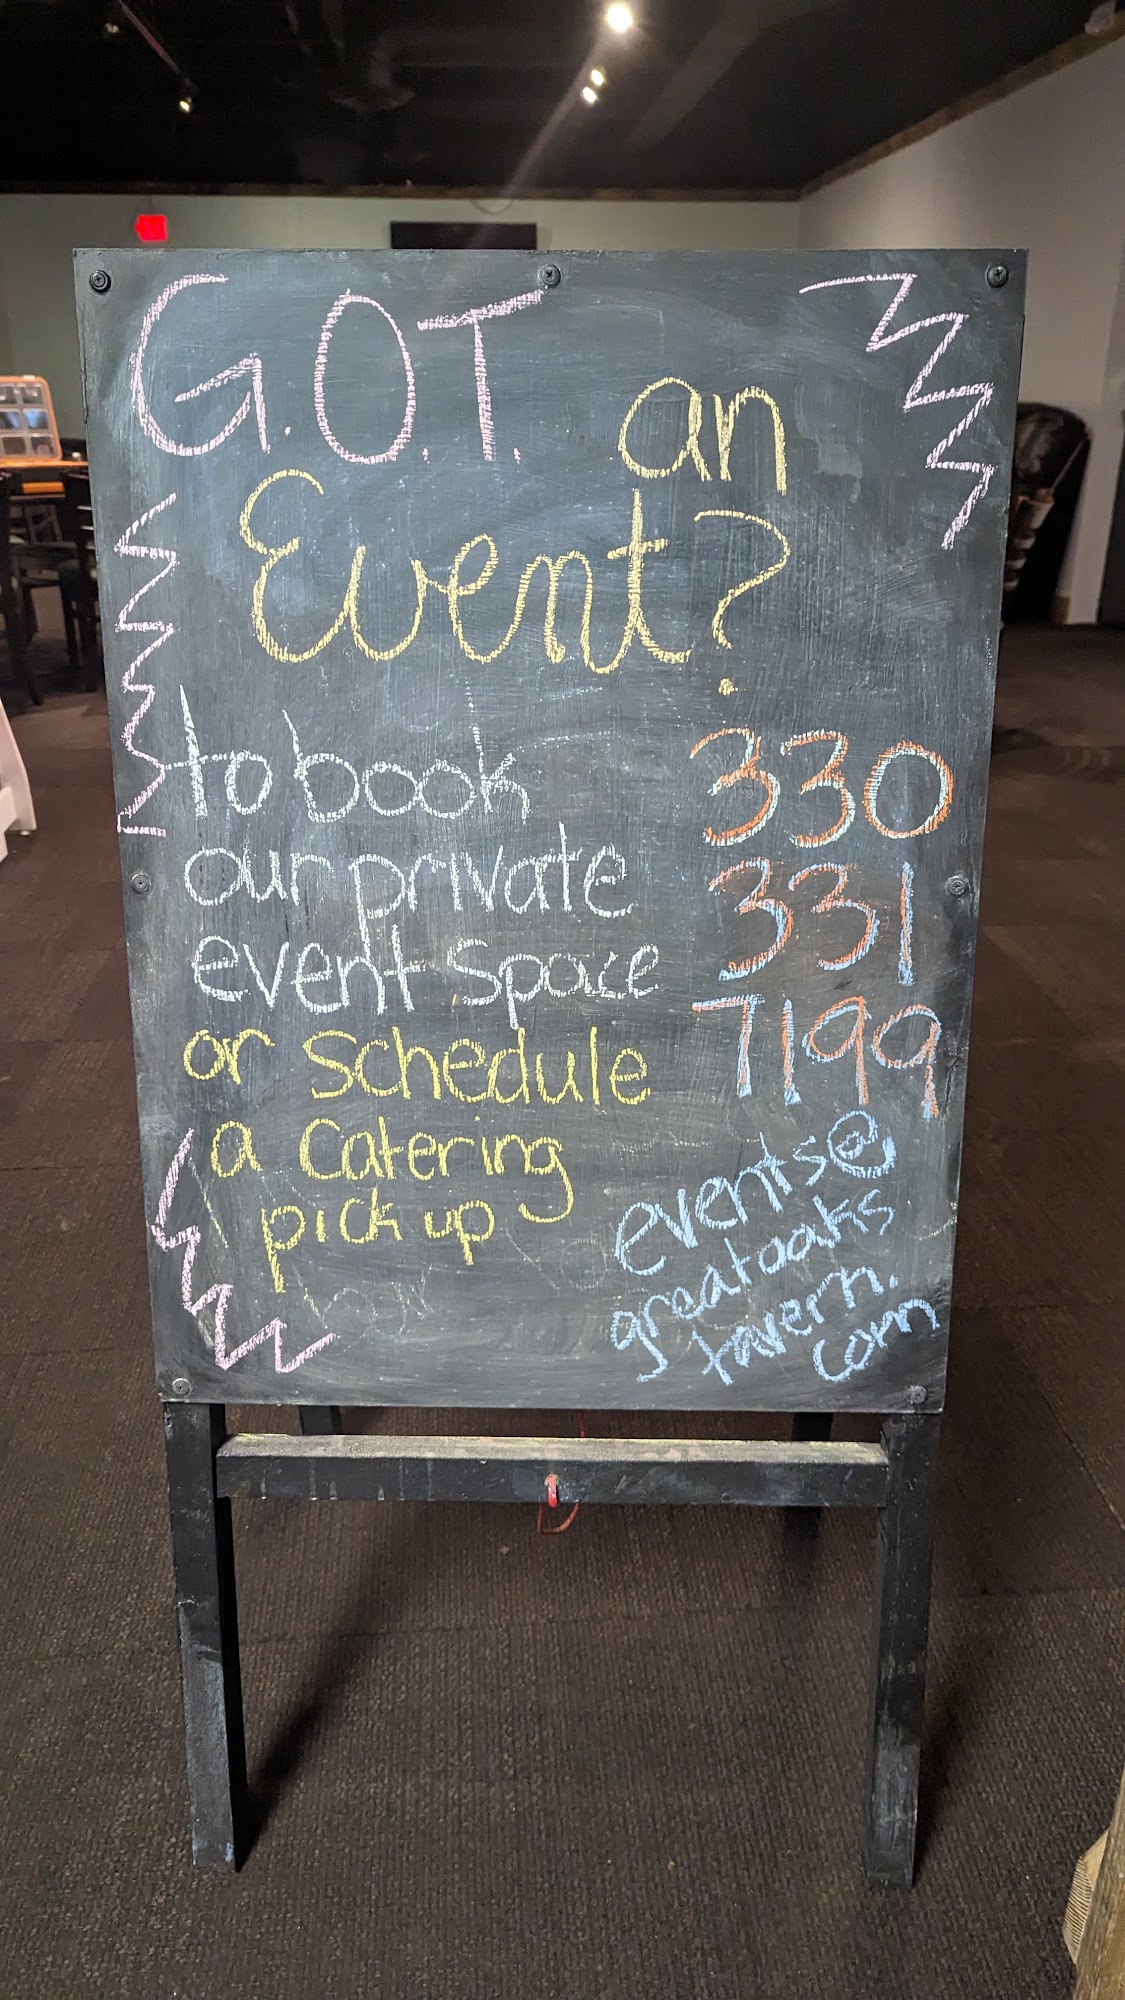 G.O.T. an
Event?
to book
our private
event space
or schedule
a Catering
pick up
330
331
7199
events@
greatoaks
tavern.
com